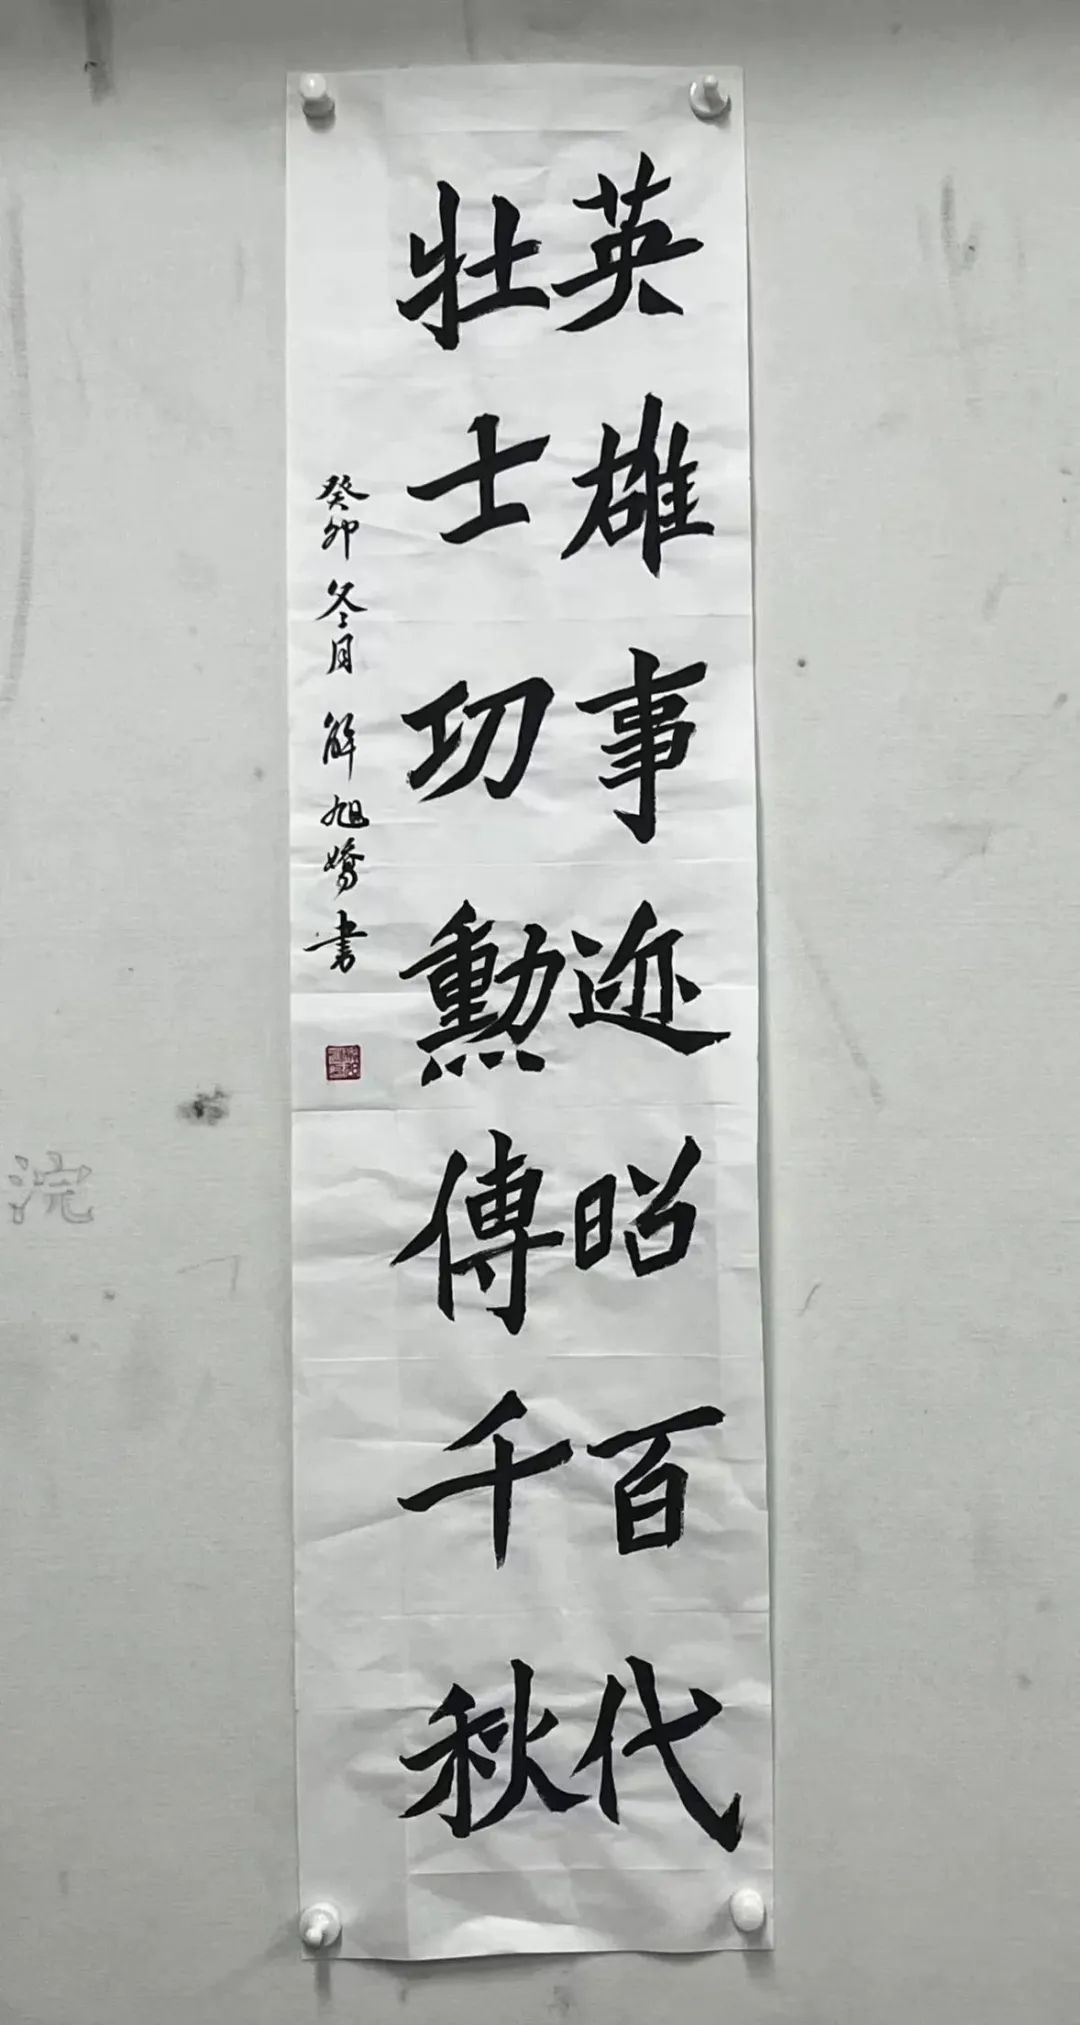 英雄事迹昭百代
壮士功勳傳千秋
癸卯冬月解旭嬌書
浣